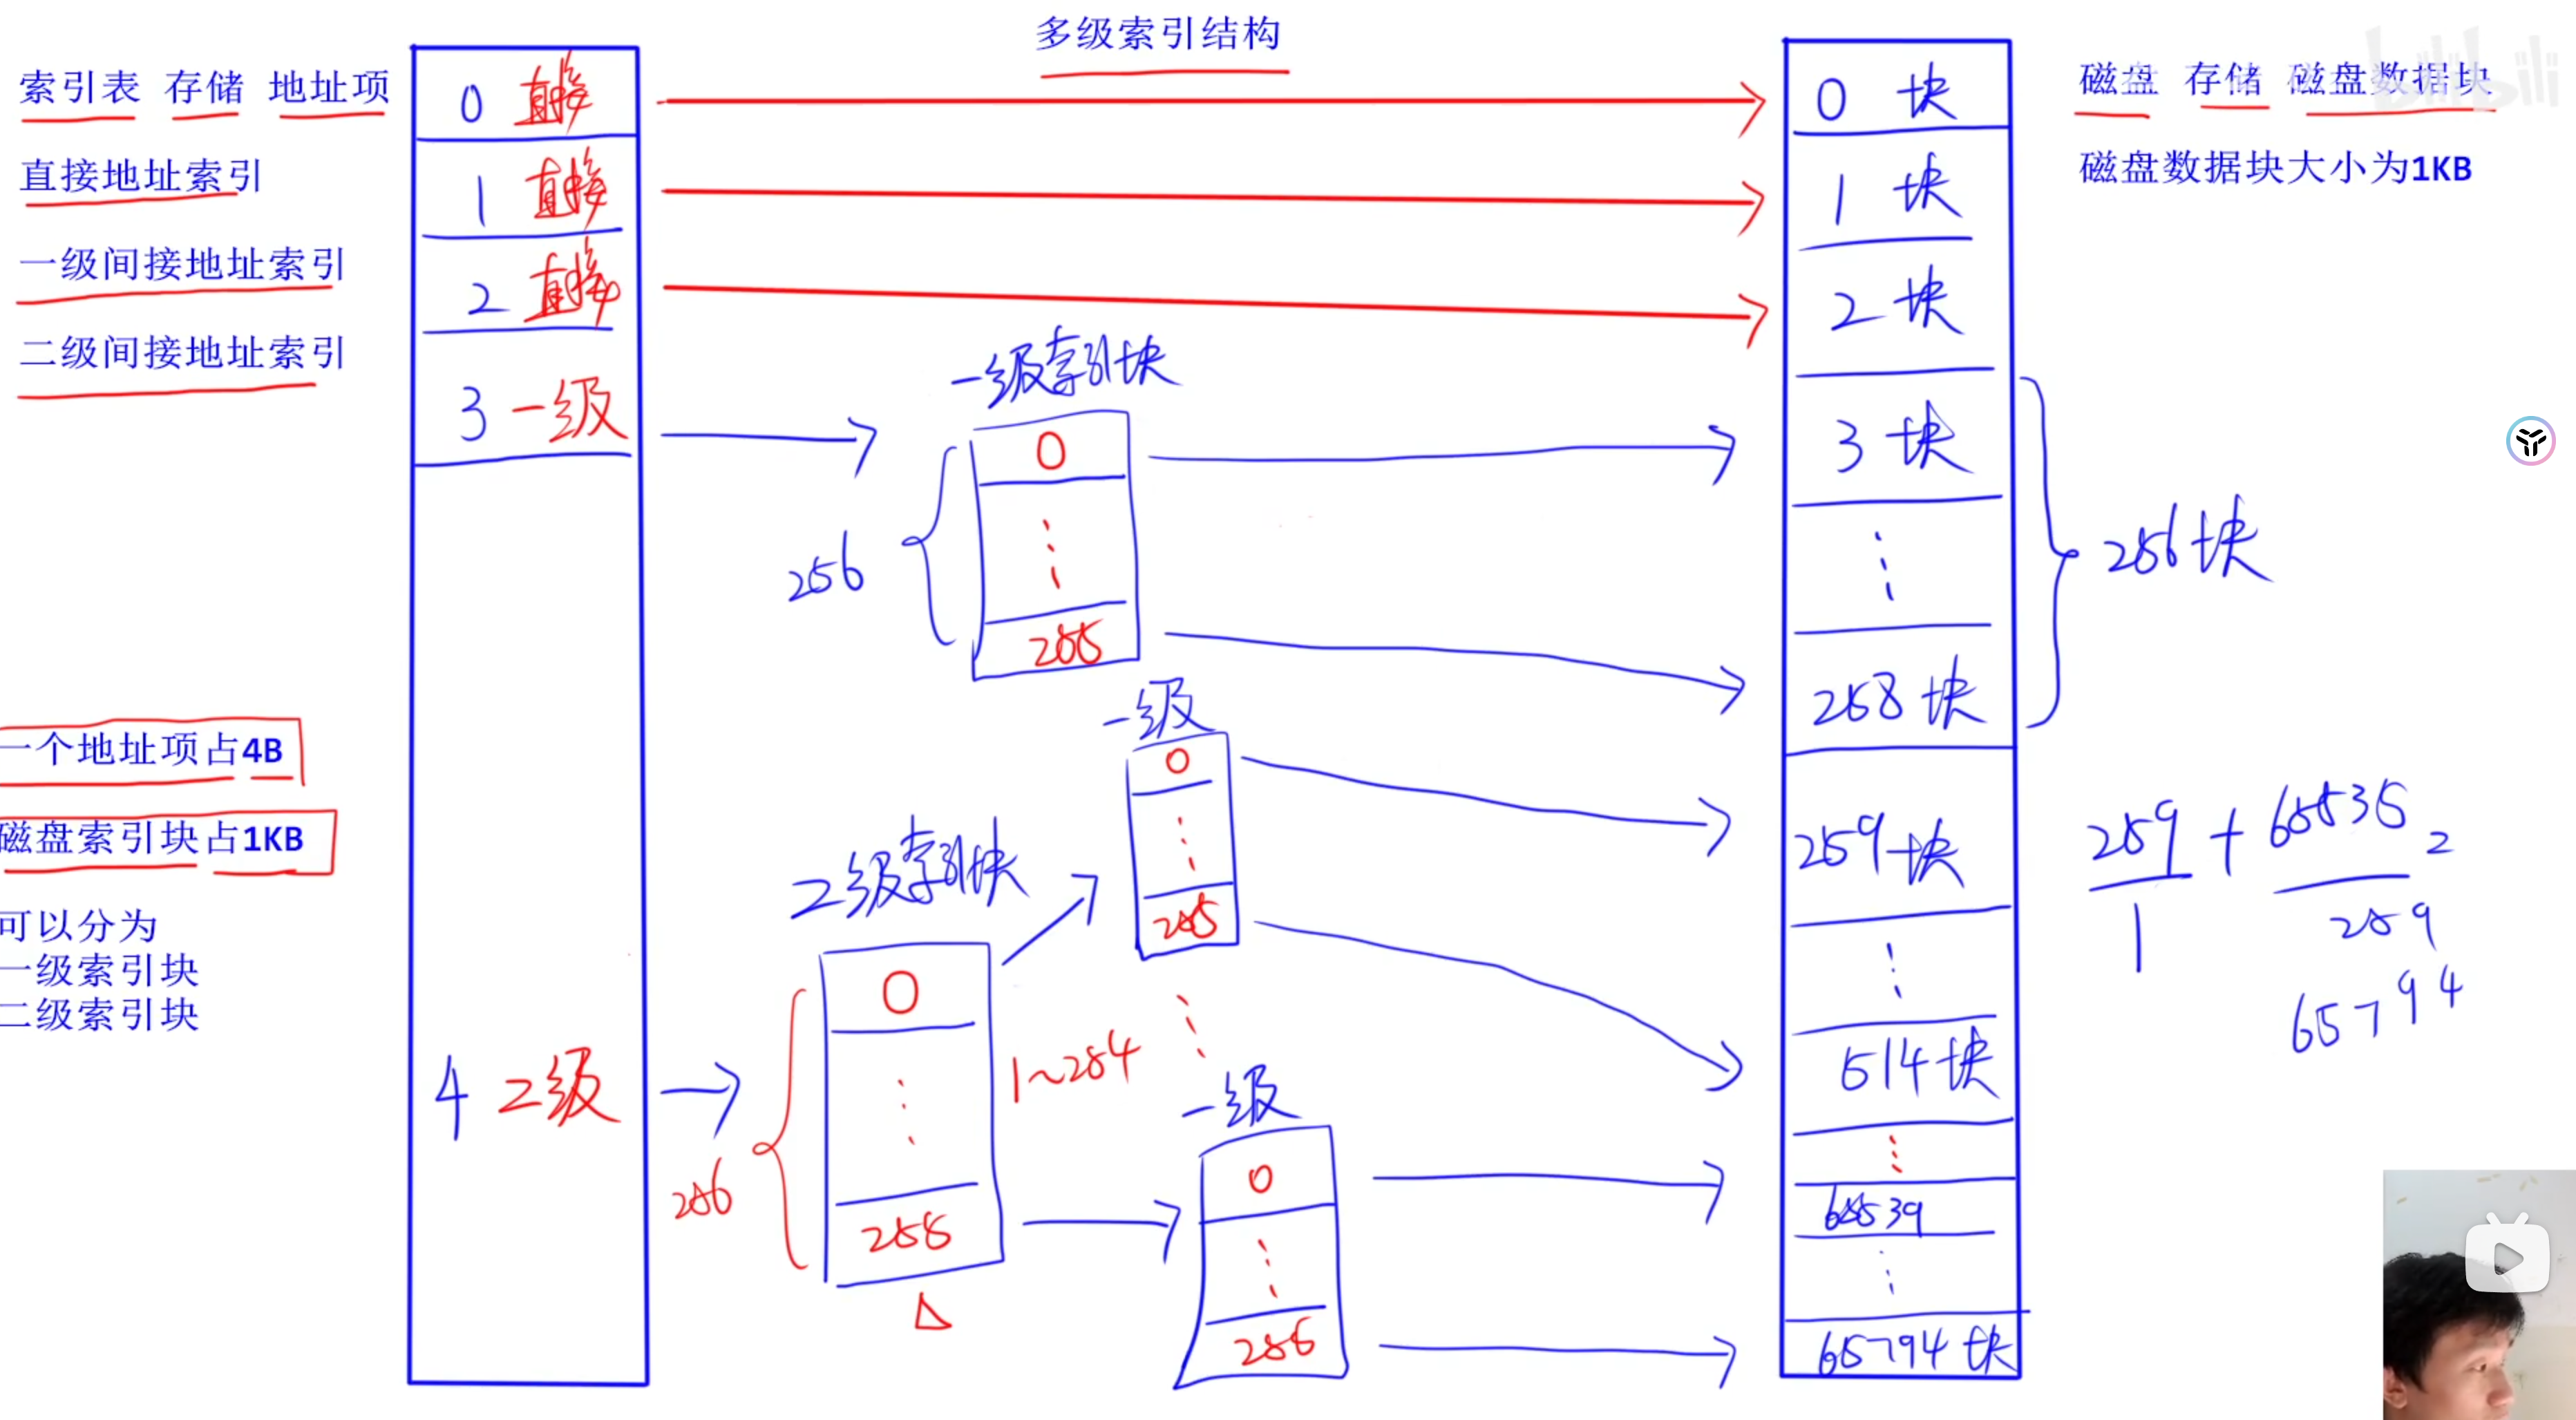 多级索引结构
索引表 存储 地址项
直接地址索引
一级间接地址索引
二级间接地址索引
一个地址项占4B
磁盘索引块占1KB
可以分为
一级索引块
二级索引块
0 直接
1 直接
2 直接
3 一级
4 二级
一级索引块
256
0
255
二级索引块
256
0
255
1~254
一级
0
255
一级
0
255
0 块
1 块
2 块
3 块
258 块
259 块
514 块
65539
65794 块
bilibili
磁盘 存储 磁盘数据块
磁盘数据块大小为1KB
256块
259 + 65535
1
2
259
65794